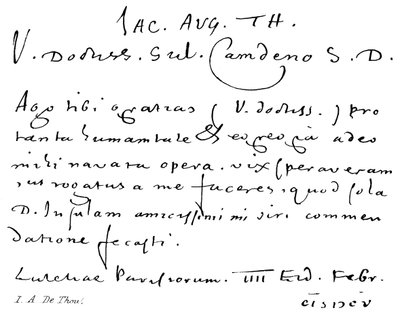 IAC. AUG. TH.
V. Doctiss. Gul. Camdeno S. D.
Ago tibi gratias ( V. doctiss. ) pro
tanta humanitate & egregia adeo
mihi navata opera. vix speraveram
ut rogatus a me faceres, quod sola
D. Insulani amicissimi mi viri commen
datione fecisti.
Lutetiae Parisiorum. IIII Eid. Febr.
I. A. De Thou.